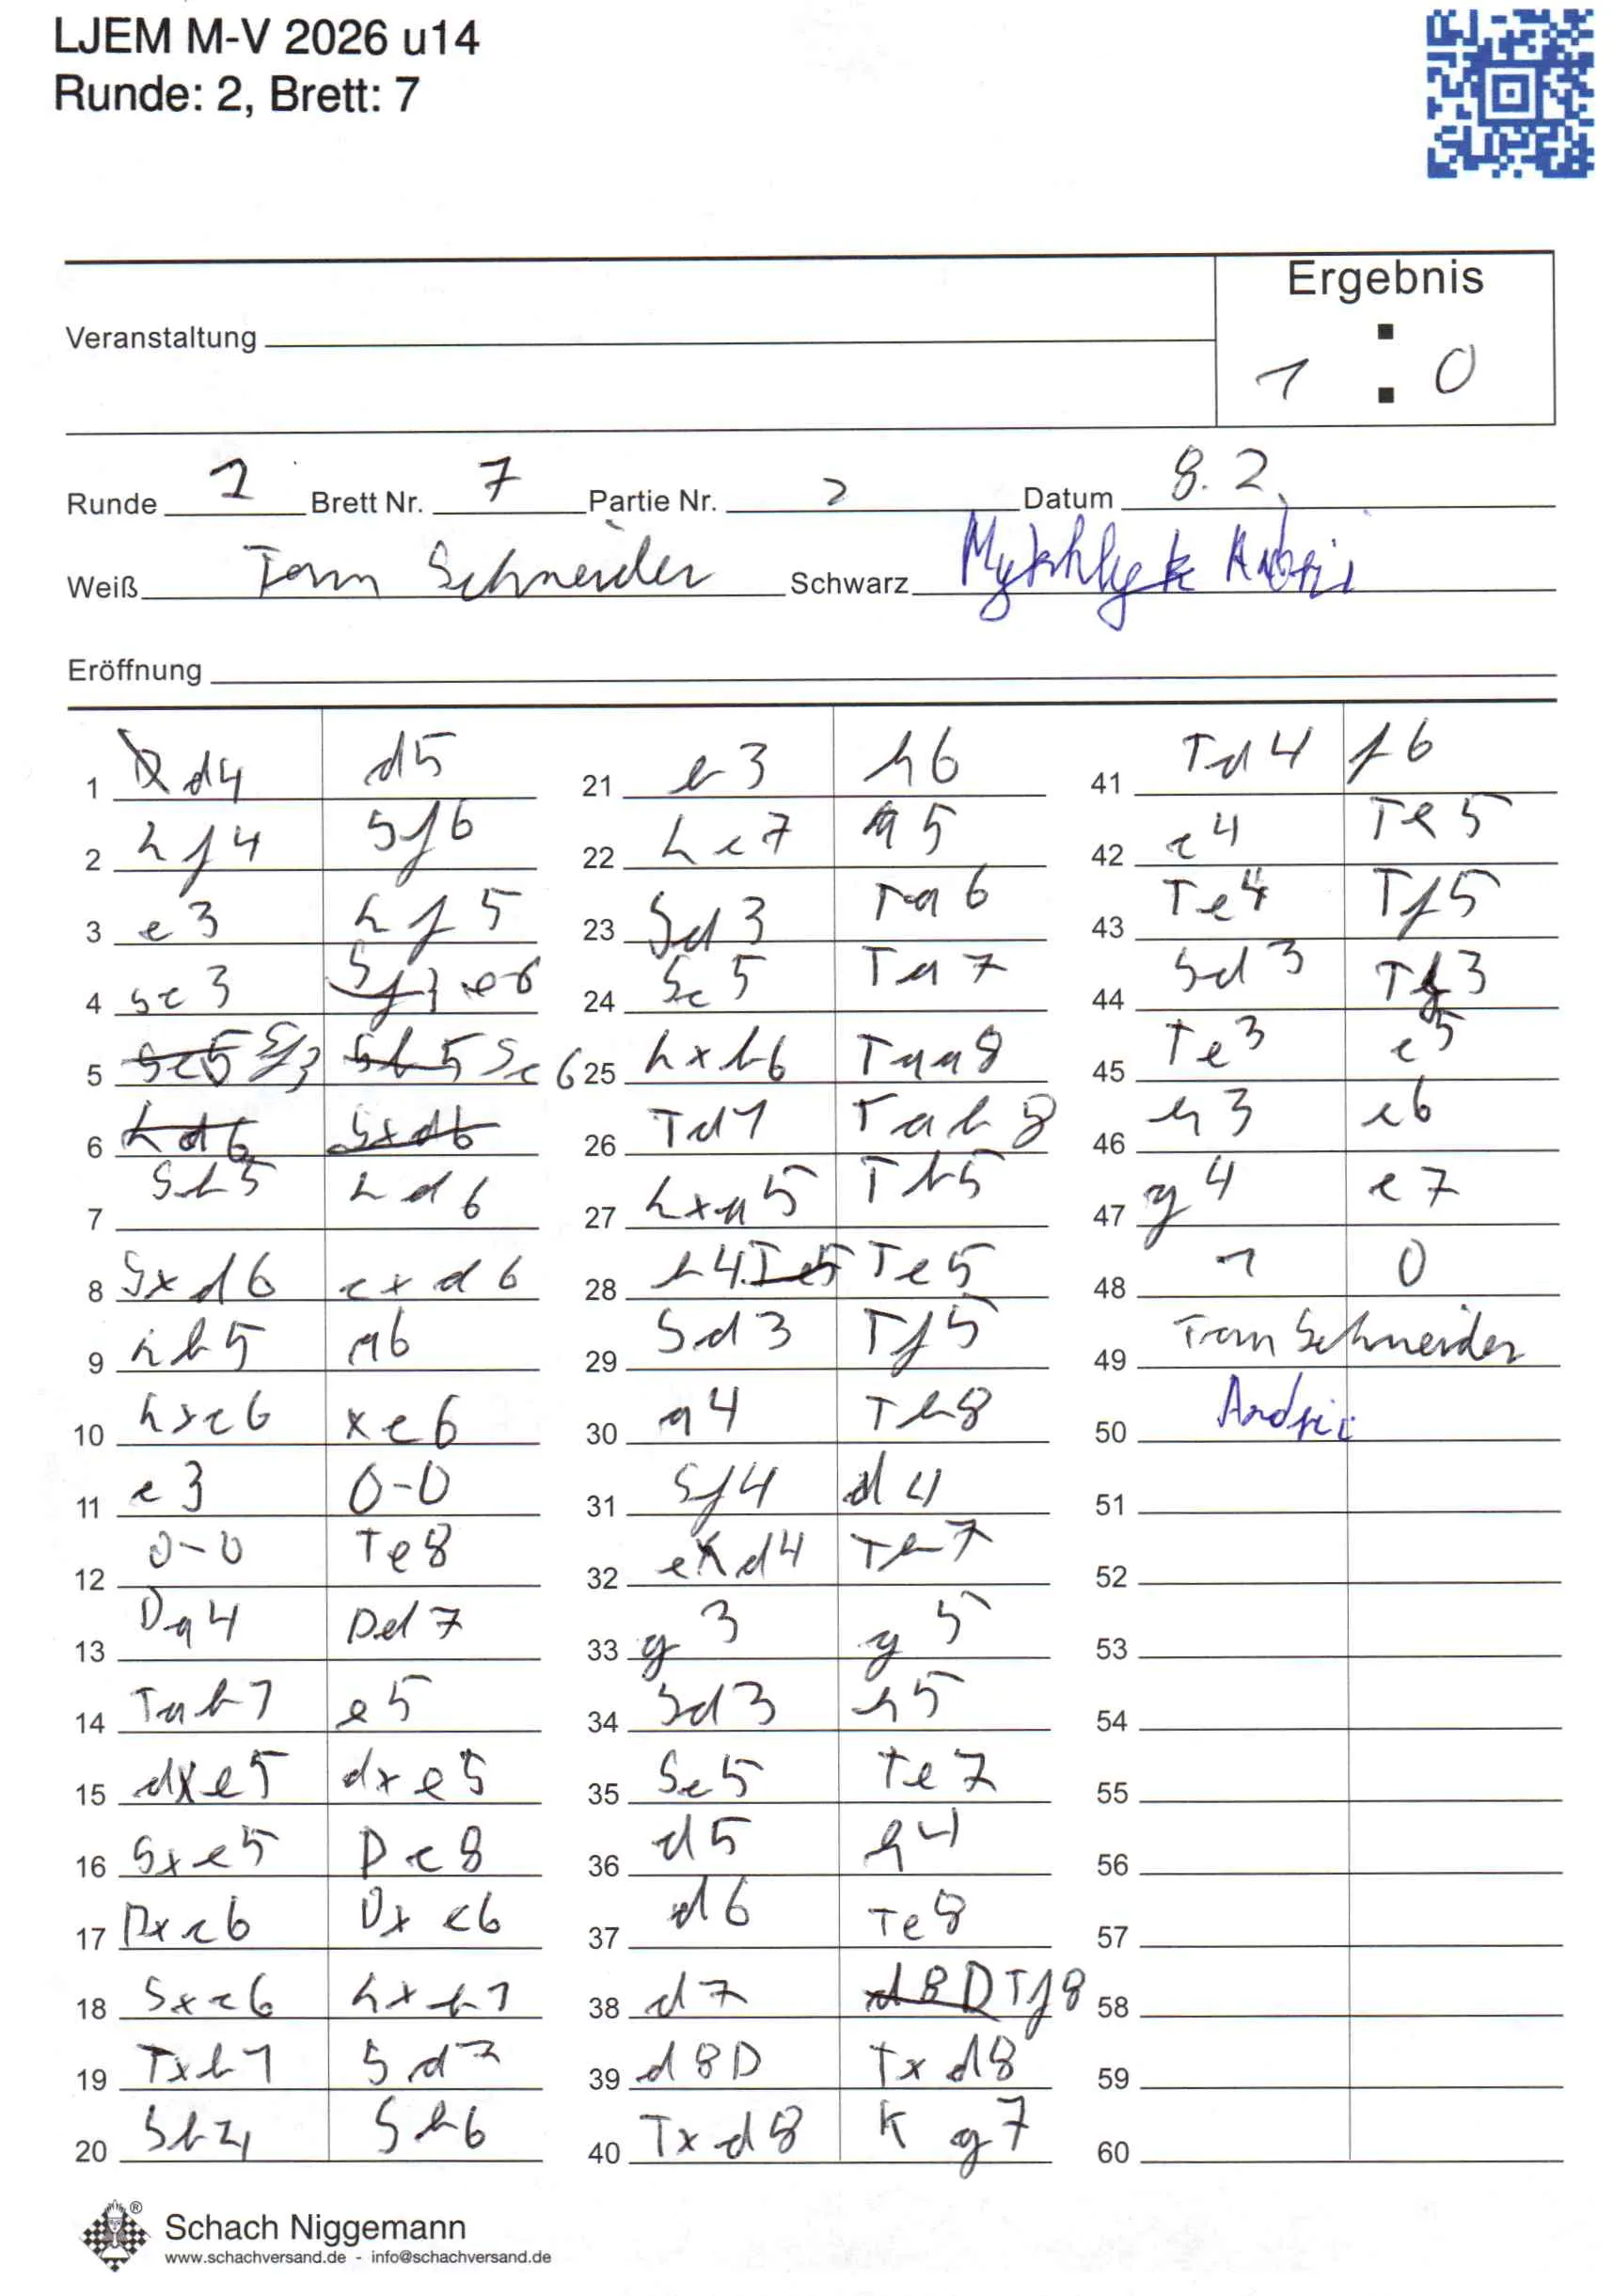 LJEM M-V 2026 u14
Runde: 2, Brett: 7
Ergebnis
Veranstaltung
1 : 0
Runde 2 Brett Nr. 7 Partie Nr. 2 Datum 8.2.
Weiß Tom Schneider Schwarz
Eröffnung
1 d4 d5 21 b3 h6 41 Td4 f6
2 Lf4 Sf6 22 Lc7 a5 42 c4 Te5
3 e3 Lf5 23 Sd3 Ta6 43 Te4 Tf5
4 Sc3 Sf3 e6 24 Sc5 Ta7 44 Sd3 Tf3
5 Sc5 Sf3 Sb5 Sc6 25 Lxb6 Taa8 45 Te3 e5
6 Ld6 Sxd6 26 Td1 Tab8 46 h3 e6
7 Sb5 Ld6 27 Lxa5 Tb5 47 g4 e7
8 Sxd6 cxd6 28 b4 Te5 Te5 48 1 0
9 Lb5 a6 29 Sd3 Tf5 49 Tom Schneider
10 Lxc6 xc6 30 a4 Tb8 50 Andrii
11 c3 0-0 31 Sf4 d4 51
12 0-0 Te8 32 exd4 Tb7 52
13 Da4 Dd7 33 g3 g5 53
14 Tab1 e5 34 Sd3 h5 54
15 dxe5 dxe5 35 Sc5 Te7 55
16 Sxe5 Dc8 36 d5 h4 56
17 Dxc6 Dxc6 37 d6 Te8 57
18 Sxc6 Lxb1 38 d7 d8D Tf8 58
19 Txb1 Sd7 39 d8D Txd8 59
20 Sb4 Sb6 40 Txd8 Kg7 60
Schach Niggemann
www.schachversand.de - info@schachversand.de